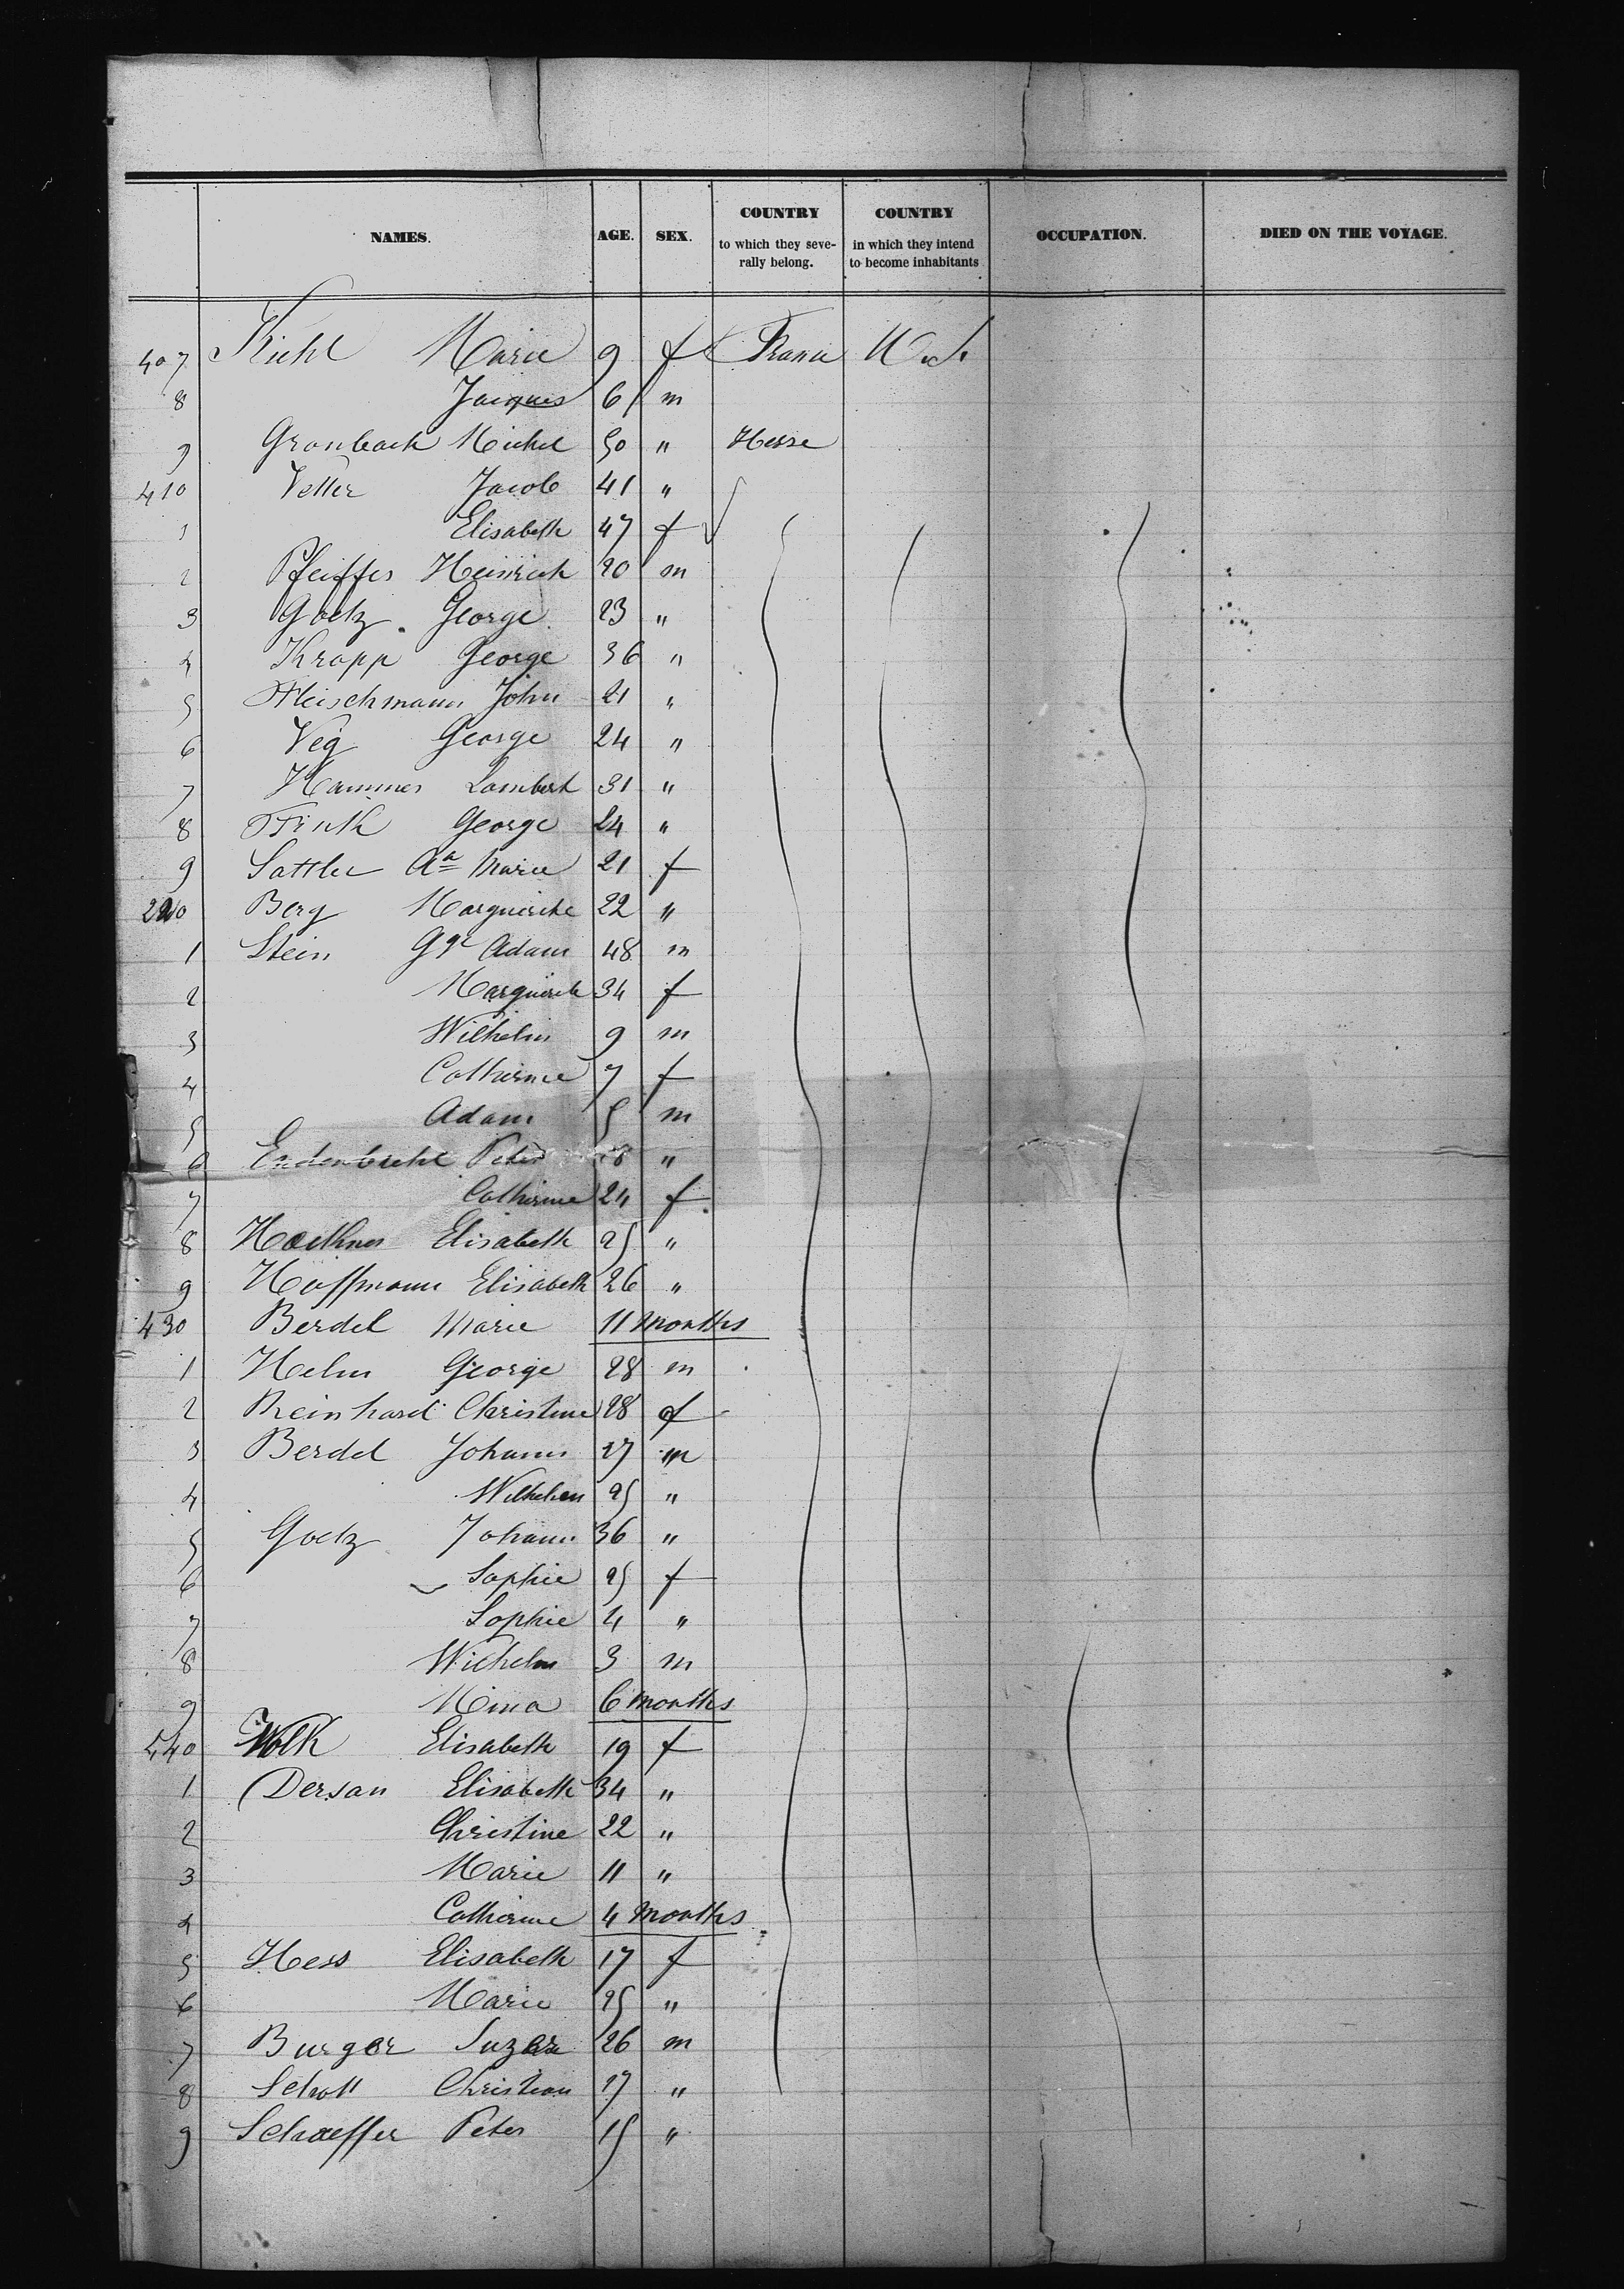 NAMES. AGE. SEX. COUNTRY to which they severally belong. COUNTRY in which they intend to become inhabitants OCCUPATION. DIED ON THE VOYAGE.
407 Kiehl Marie 9 f France U. S.
8 Jacques 6 m
9 Gronbach Michel 50 " Hesse
410 Vetter Jacob 41 "
1 Elisabeth 47 f
2 Pfeiffer Heinrich 20 m
3 Goetz George 23 "
4 Krapp George 36 "
5 Fleischmann John 21 "
6 Veg George 24 "
7 Hammer Lambert 31 "
8 Fink George 24 "
9 Sattler Aa Marie 21 f
2240 Berg Marguerite 22 "
1 Stein Gge Adam 48 m
2 Marguerite 34 f
3 Wilhelm 9 m
4 Catherine 7 f
5 Adam 5 m
6 Peter "
7 Catherine 24 f
8 Elisabeth 25 "
9 Hoffmann Elisabeth 26 "
430 Berdel Marie 11 months
1 Helm George 28 m
2 Reinhard Christine 28 f
3 Berdel Johann 27 m
4 Wilhelm 25 "
5 Goetz Johann 36 "
6 Sophie 25 f
7 Sophie 4 "
8 Wilhelm 3 m
9 Mina 6 months
440 Wolk Elisabeth 19 f
1 Dersan Elisabeth 34 "
2 Christine 22 "
3 Marie 11 "
4 Catherine 4 months
5 Hess Elisabeth 17 f
6 Marie 25 "
7 Burger 26 m
8 Schott Christian 17 "
9 Schaeffer Peter 15 "